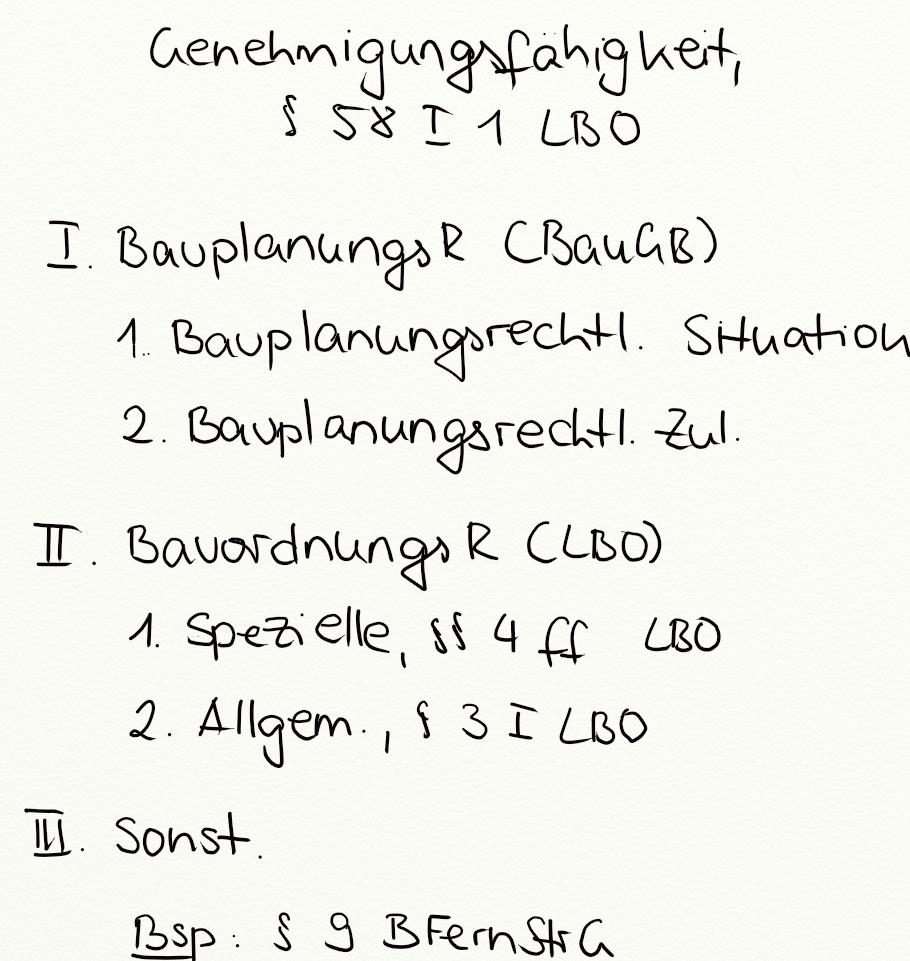 Genehmigungsfähigkeit,
§ 58 I 1 LBO
I. BauplanungsR (BauGB)
1. Bauplanungsrechtl. Situation
2. Bauplanungsrechtl. Zul.
II. BauordnungsR (LBO)
1. Spezielle, §§ 4 ff LBO
2. Allgem., § 3 I LBO
III. Sonst.
Bsp: § 9 BFernStrG